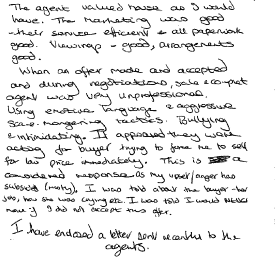 The agent valued house as I would
have. The marketing was good
- their service efficient & all paperwork
good. Viewings - good, arrangements
good.
When an offer made and accepted
and during negotiations, sale
agent was very unprofessional.
Using emotive language & aggressive
scare-mongering tactics. Bullying
& intimidating. It appeared they were
acting for buyer trying to force me to sell
for low price immediately. This is a
considered response as my upset/anger has
subsided (mostly). I was told about the buyer - her
job, how she was crying etc. I was told I would
I did not accept this offer.
I have enclosed a letter sent recently to the
agents.